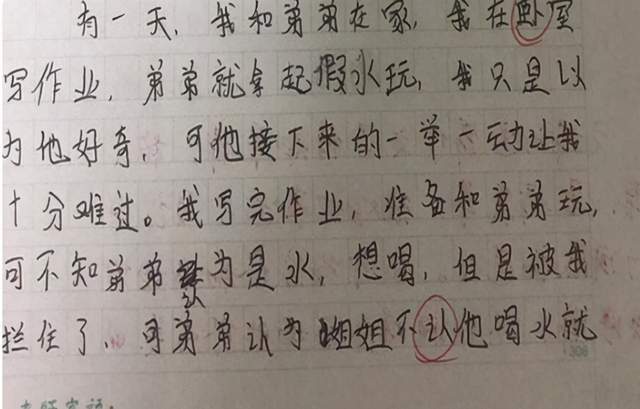 有一天，我和弟弟在家，我在卧室
写作业，弟弟就拿起假水玩，我只是以
为他好奇，可他接下来的一举一动让我
十分难过。我写完作业，准备和弟弟玩，
可不知弟弟以为是水，想喝，但是被我
拦住了，可弟弟认为姐姐不认他喝水就
300